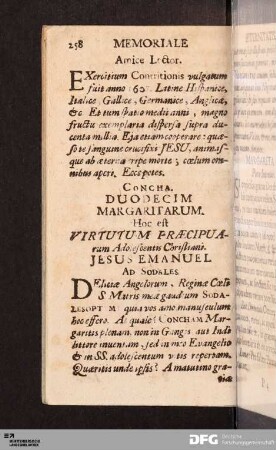 258 MEMORIALE
Amice Lector.
EXercitium Contritionis vulgatum
fuit anno Latine Hispanice,
Italice, Gallice, Germanice, Anglice,
&c Et tum spatio medii anni, magno
fructu exemplaria dispersa supra du-
centa millia. Eja etiam coopera re: quæ-
so te sanguine crucifixi JESU, animasq-
que ab æterna ripe morte; cœlum om-
nibus aperi. Ecce petes.
CONCHA.
DUODECIM
MARGARITARUM.
Hoc est
VIRTUTUM PRÆCIPUA-
rum Adolescentis Christiani.
JESUS EMANUEL
AD SODALES
DElitiæ Angelorum, Reginæ Cœli
S Matris meæ gaudium SODA-
LES OPTIMI quia vos amo munusculum
hoc effero. At quale? CONCHAM Mar-
garitis plenam, non in Gangis aut Indi
littore inventam, sed in meo Evangelio
& in SS. adolescentum vitis repertam.
Quæritis unde ipsis? A matutino gra-
DFG Deutsche
Forschungsgemeinschaft